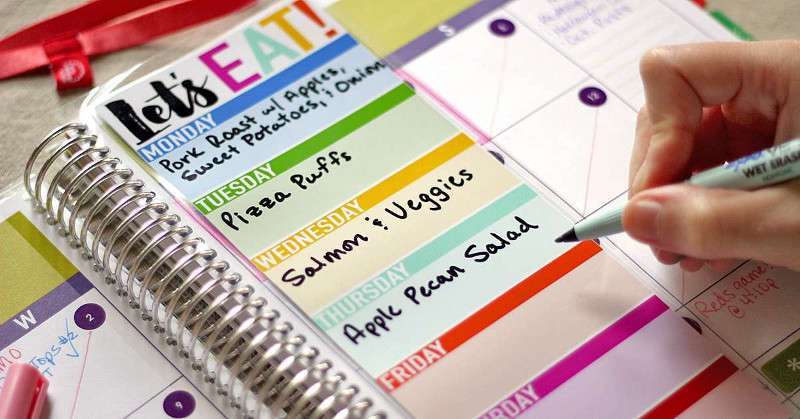 Let's EAT!
MONDAY
Pork Roast w/ Apples,
Sweet Potatoes, & Onion
TUESDAY
Pizza Puffs
WEDNESDAY
Salmon & Veggies
THURSDAY
Apple Pecan Salad
FRIDAY
5
12
WET ERASE
Reds game
@ 4:10p
W
2
9